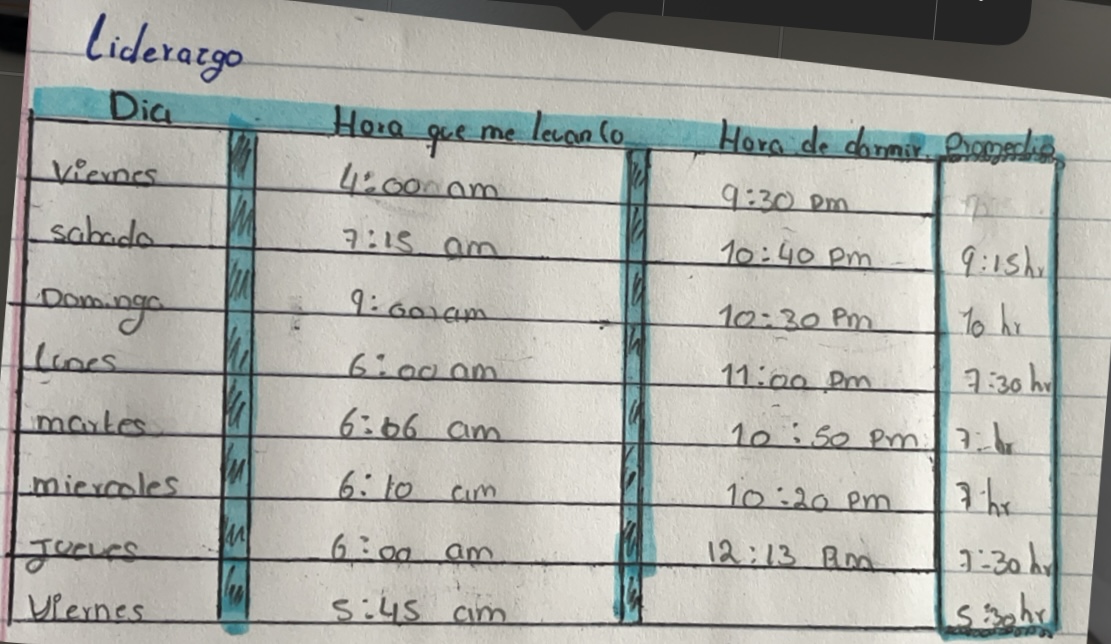 Liderazgo
Dia Hora que me levanto Hora de dormir Promedio
Viernes 4:00 am 9:30 pm
sabado 7:15 am 10:40 pm 9:15 hr
Domingo 9:00 am 10:30 pm 10 hr
lunes 6:00 am 11:00 pm 7:30 hr
martes 6:06 am 10:50 pm 7: hr
miercoles 6:10 am 10:20 pm 7 hr
Jueves 6:00 am 12:13 am 7:30 hr
Viernes 5:45 am 5:30 hr